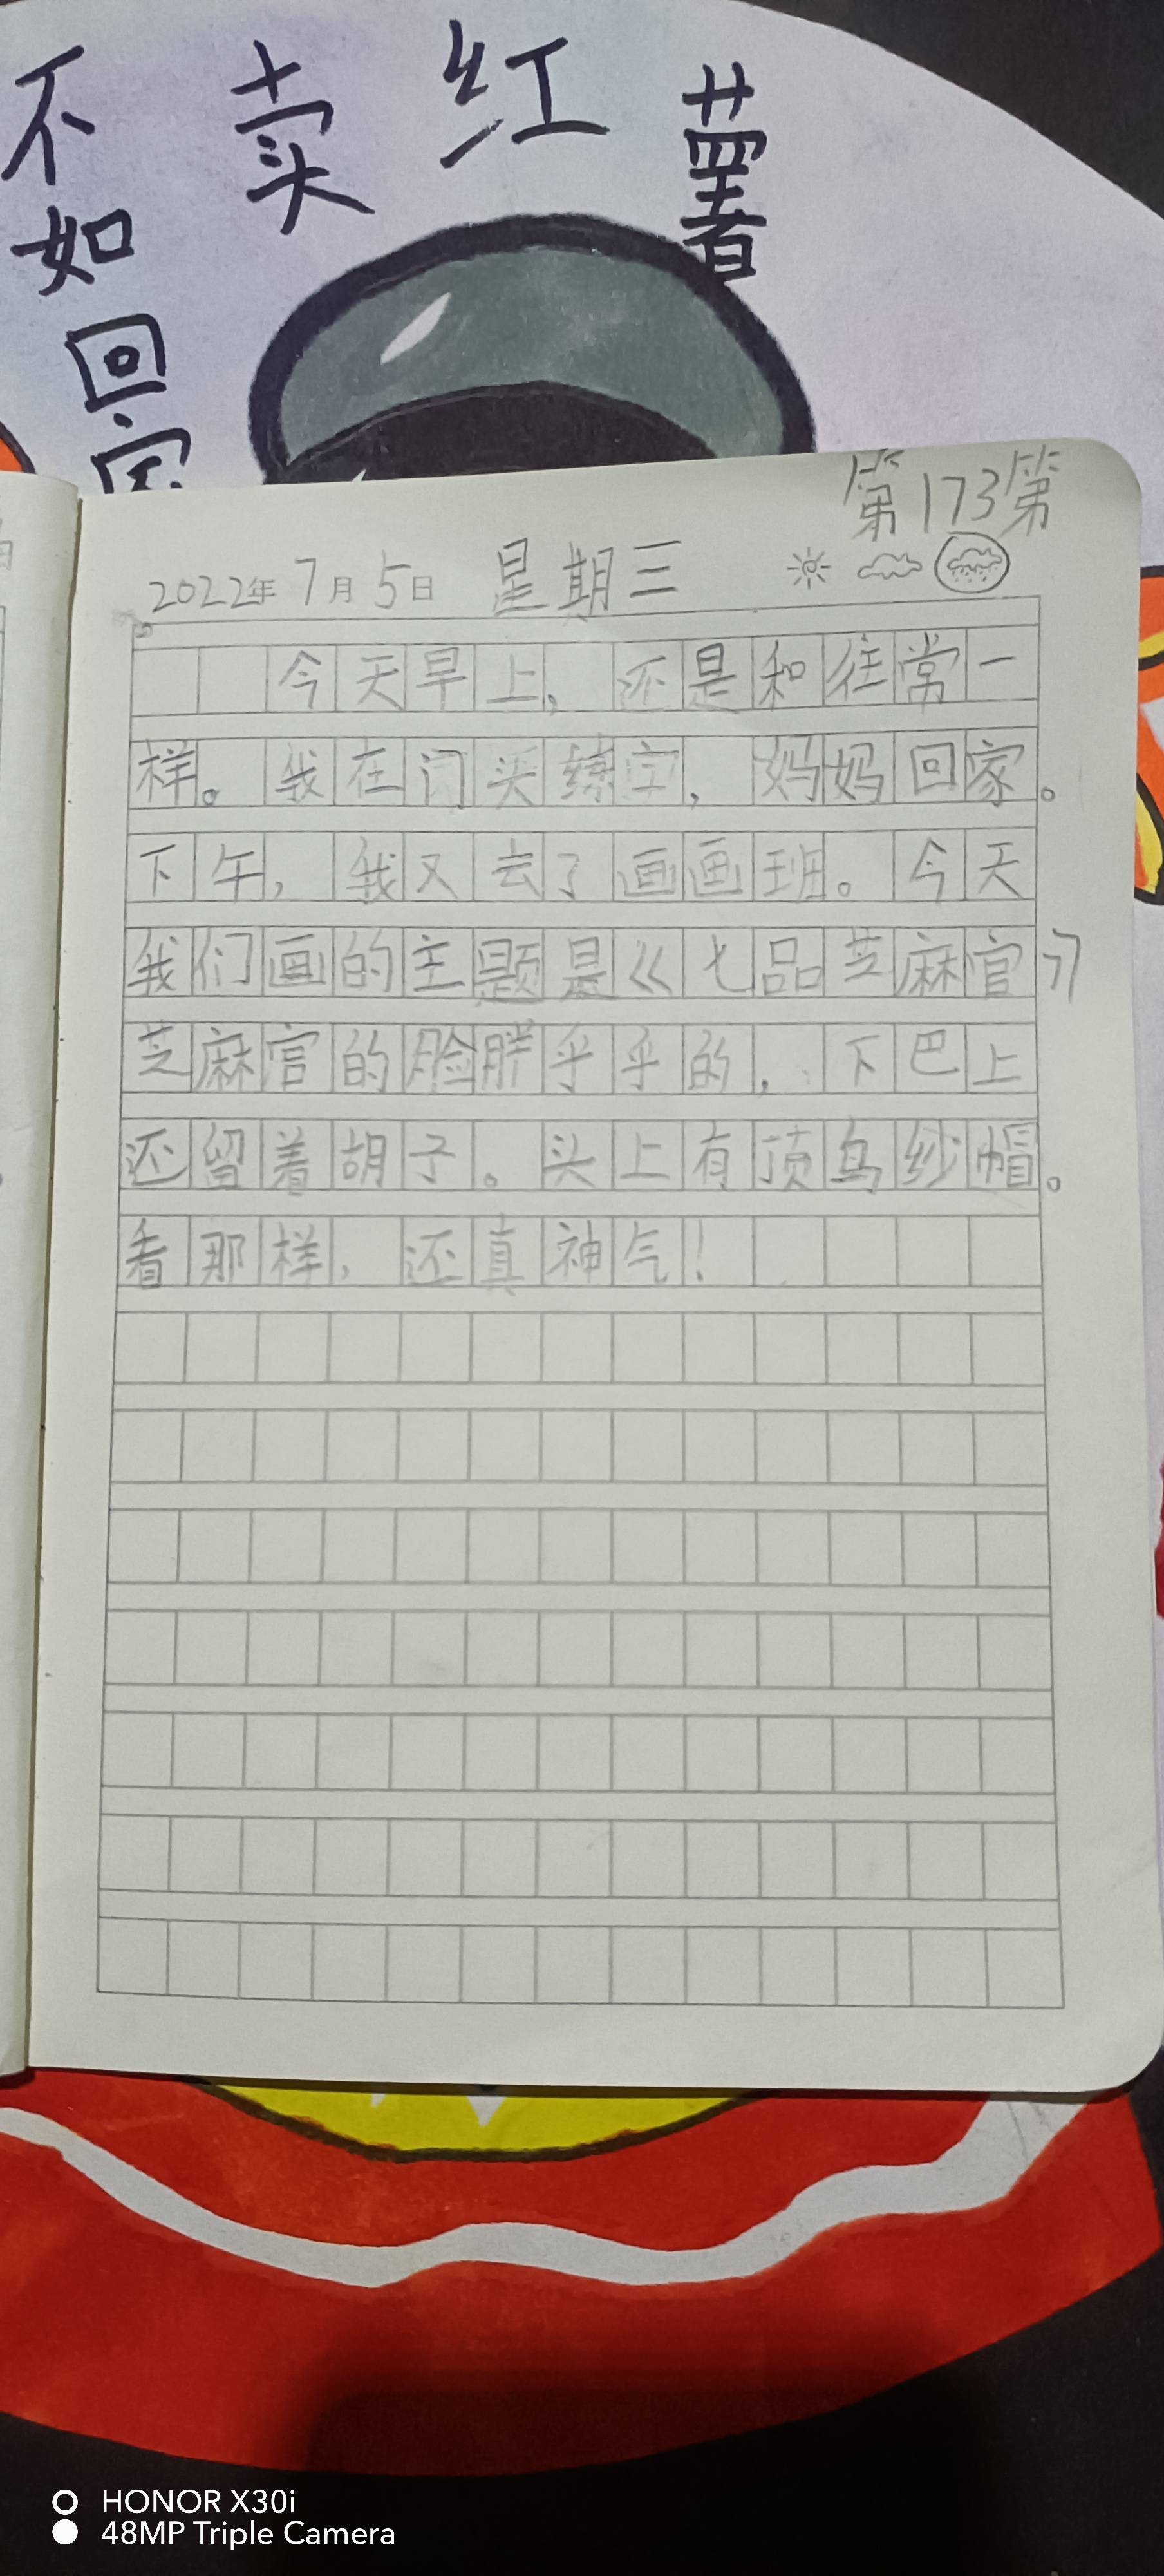 不卖红薯
如
回
家
第173第
2022年7月5日 星期三
今天早上，还是和往常一
样。我在门头练字，妈妈回家。
下午，我又去了画画班。今天
我们画的主题是《七品芝麻官》
芝麻官的脸胖乎乎的，、下巴上
还留着胡子。头上有顶乌纱帽。
看那样，还真神气！
HONOR X30i
48MP Triple Camera